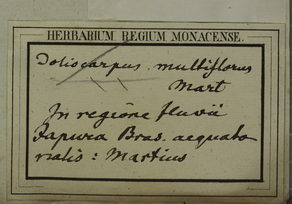 HERBARIUM REGIUM MONACENSE.
Doliocarpus multiflorus
Mart
In regione fluvii
Japura Bras. aequato
rialis: Martius